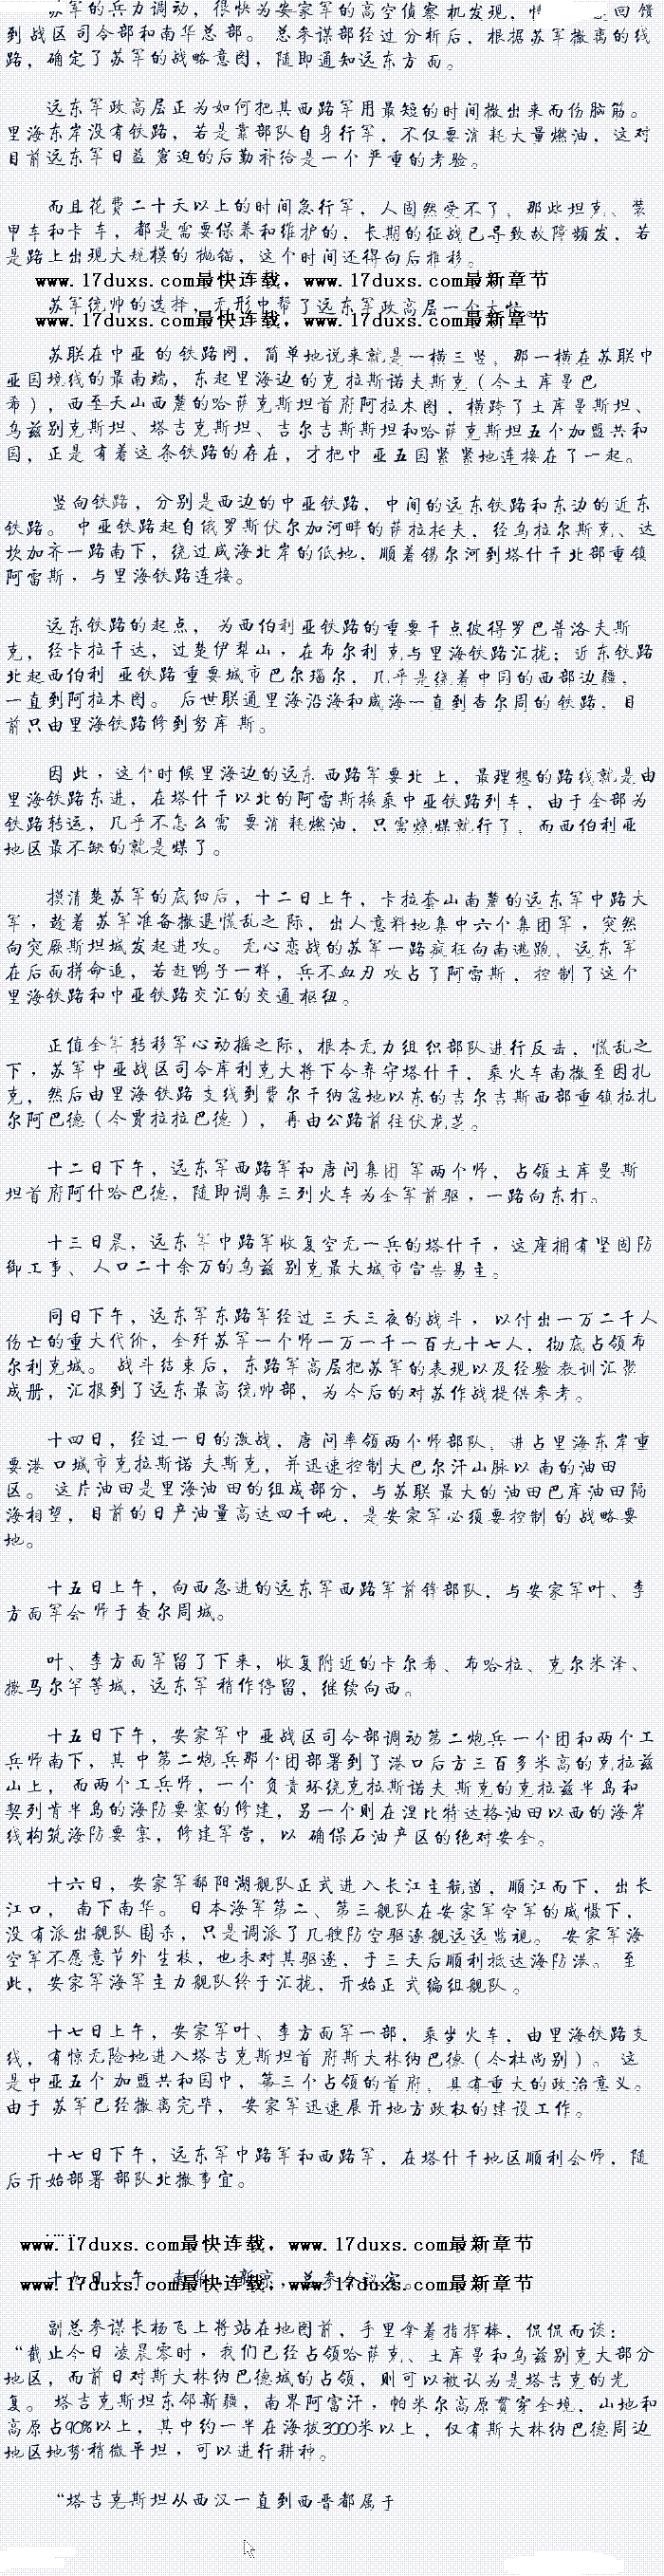 苏军的兵力调动，很快为安家军的高空侦察机发现，回馈
到战区司令部和南华总部。 总参谋部经过分析后，根据苏军撤离的线
路，确定了苏军的战略意图，随即通知远东方面。
远东军政高层正为如何把其西路军用最短的时间撤出来而伤脑筋。
里海东岸没有铁路，若是靠部队自身行军，不仅要消耗大量燃油，这对
目前远东军日益窘迫的后勤补给是一个严重的考验。
而且花费二十天以上的时间急行军，人固然受不了，那些坦克、装
甲车和卡车，都是需要保养和维护的，长期的征战已导致故障频发，若
是路上出现大规模的抛锚，这个时间还得向后推移。
www.17duxs.com最快连载，www.17duxs.com最新章节
苏军统帅的选择，无形中帮了远东军政高层一个大忙。
www.17duxs.com最快连载，www.17duxs.com最新章节
苏联在中亚的铁路网，简单地说来就是一横三竖，那一横在苏联中
亚国境线的最南端，东起里海边的克拉斯诺夫斯克（今土库曼巴
希），西至天山西麓的哈萨克斯坦首府阿拉木图，横跨了土库曼斯坦、
乌兹别克斯坦、塔吉克斯坦、吉尔吉斯斯坦和哈萨克斯坦五个加盟共和
国，正是有着这条铁路的存在，才把中亚五国紧紧地连接在了一起。
竖向铁路，分别是西边的中亚铁路，中间的远东铁路和东边的近东
铁路。 中亚铁路起自俄罗斯伏尔加河畔的萨拉托夫，经乌拉尔斯克、达
坎加齐一路南下，绕过咸海北岸的低地，顺着锡尔河到塔什干北部重镇
阿雷斯，与里海铁路连接。
远东铁路的起点，为西伯利亚铁路的重要干点彼得罗巴普洛夫斯
克，经卡拉干达，过楚伊犁山，在布尔利克与里海铁路汇拢；近东铁路
北起西伯利亚铁路重要城市巴尔瑙尔，几乎是绕着中国的西部边疆，
一直到阿拉木图。 后世联通里海沿海和咸海一直到查尔周的铁路，目
前只由里海铁路修到努库斯。
因此，这个时候里海边的远东西路军要北上，最理想的路线就是由
里海铁路东进，在塔什干以北的阿雷斯换乘中亚铁路列车，由于全部为
铁路转运，几乎不怎么需要消耗燃油，只需烧煤就行了，而西伯利亚
地区最不缺的就是煤了。
摸清楚苏军的底细后，十二日上午，卡拉套山南麓的远东军中路大
军，趁着苏军准备撤退慌乱之际，出人意料地集中六个集团军，突然
向突厥斯坦城发起进攻。 无心恋战的苏军一路疯狂向南逃跑，远东军
在后面拼命追，若赶鸭子一样，兵不血刃攻占了阿雷斯，控制了这个
里海铁路和中亚铁路交汇的交通枢纽。
正值全军转移军心动摇之际，根本无力组织部队进行反击，慌乱之
下，苏军中亚战区司令库利克大将下令弃守塔什干，乘火车南撤至因扎
克，然后由里海铁路支线到费尔干纳盆地以东的吉尔吉斯西部重镇拉扎
尔阿巴德（今贾拉拉巴德），再由公路前往伏龙芝。
十二日下午，远东军西路军和唐问集团军两个师，占领土库曼斯
坦首府阿什哈巴德，随即调集三列火车为全军前驱，一路向东打。
十三日晨，远东军中路军收复空无一兵的塔什干，这座拥有坚固防
御工事、人口二十余万的乌兹别克最大城市宣告易主。
同日下午，远东军东路军经过三天三夜的战斗，以付出一万二千人
伤亡的重大代价，全歼苏军一个师一万一千一百九十七人，彻底占领布
尔利克城。 战斗结束后，东路军高层把苏军的表现以及经验教训汇聚
成册，汇报到了远东最高统帅部，为今后的对苏作战提供参考。
十四日，经过一日的激战，唐问率领两个师部队，进占里海东岸重
要港口城市克拉斯诺夫斯克，并迅速控制大巴尔汗山脉以南的油田
区。 这片油田是里海油田的组成部分，与苏联最大的油田巴库油田隔
海相望，目前的日产油量高达四千吨，是安家军必须要控制的战略要
地。
十五日上午，向西急进的远东军西路军前锋部队，与安家军叶、李
方面军会师于查尔周城。
叶、李方面军留了下来，收复附近的卡尔希、布哈拉、克尔米泽、
撒马尔罕等城，远东军稍作停留，继续向西。
十五日下午，安家军中亚战区司令部调动第二炮兵一个团和两个工
兵师南下，其中第二炮兵那个团部署到了港口后方三百多米高的克拉兹
山上，而两个工兵师，一个负责环绕克拉斯诺夫斯克的克拉兹半岛和
契列肯半岛的海防要塞的修建，另一个则在涅比特达格油田以西的海岸
线构筑海防要塞，修建军营，以确保石油产区的绝对安全。
十六日，安家军鄱阳湖舰队正式进入长江主航道，顺江而下，出长
江口，南下南华。 日本海军第二、第三舰队在安家军空军的威慑下，
没有派出舰队围杀，只是调派了几艘防空驱逐舰远远监视。 安家军海
空军不愿意节外生枝，也未对其驱逐，于三天后顺利抵达海防港。 至
此，安家军海军主力舰队终于汇拢，开始正式编组舰队。
十七日上午，安家军叶、李方面军一部，乘坐火车，由里海铁路支
线，有惊无险地进入塔吉克斯坦首府斯大林纳巴德（今杜尚别）。 这
是中亚五个加盟共和国中，第三个占领的首府，具有重大的政治意义。
由于苏军已经撤离完毕，安家军迅速展开地方政权的建设工作。
十七日下午，远东军中路军和西路军，在塔什干地区顺利会师，随
后开始部署部队北撤事宜。
……
www.17duxs.com最快连载，www.17duxs.com最新章节
十九日上午，南华，新京，总参会议室。
www.17duxs.com最快连载，www.17duxs.com最新章节
副总参谋长杨飞上将站在地图前，手里拿着指挥棒，侃侃而谈：
“截止今日凌晨零时，我们已经占领哈萨克、土库曼和乌兹别克大部分
地区，而前日对斯大林纳巴德城的占领，则可以被认为是塔吉克的光
复。 塔吉克斯坦东邻新疆，南界阿富汗，帕米尔高原贯穿全境，山地和
高原占90%以上，其中约一半在海拔3000米以上，仅有斯大林纳巴德周边
地区地势稍微平坦，可以进行耕种。
“塔吉克斯坦从西汉一直到西晋都属于